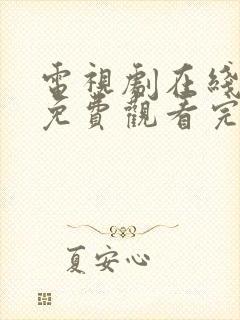 電視劇在綫
免費觀看完
夏安心